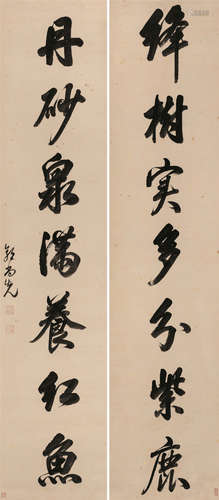 绛樹实多分紫鹿
丹砂泉满養红魚
郭尚先